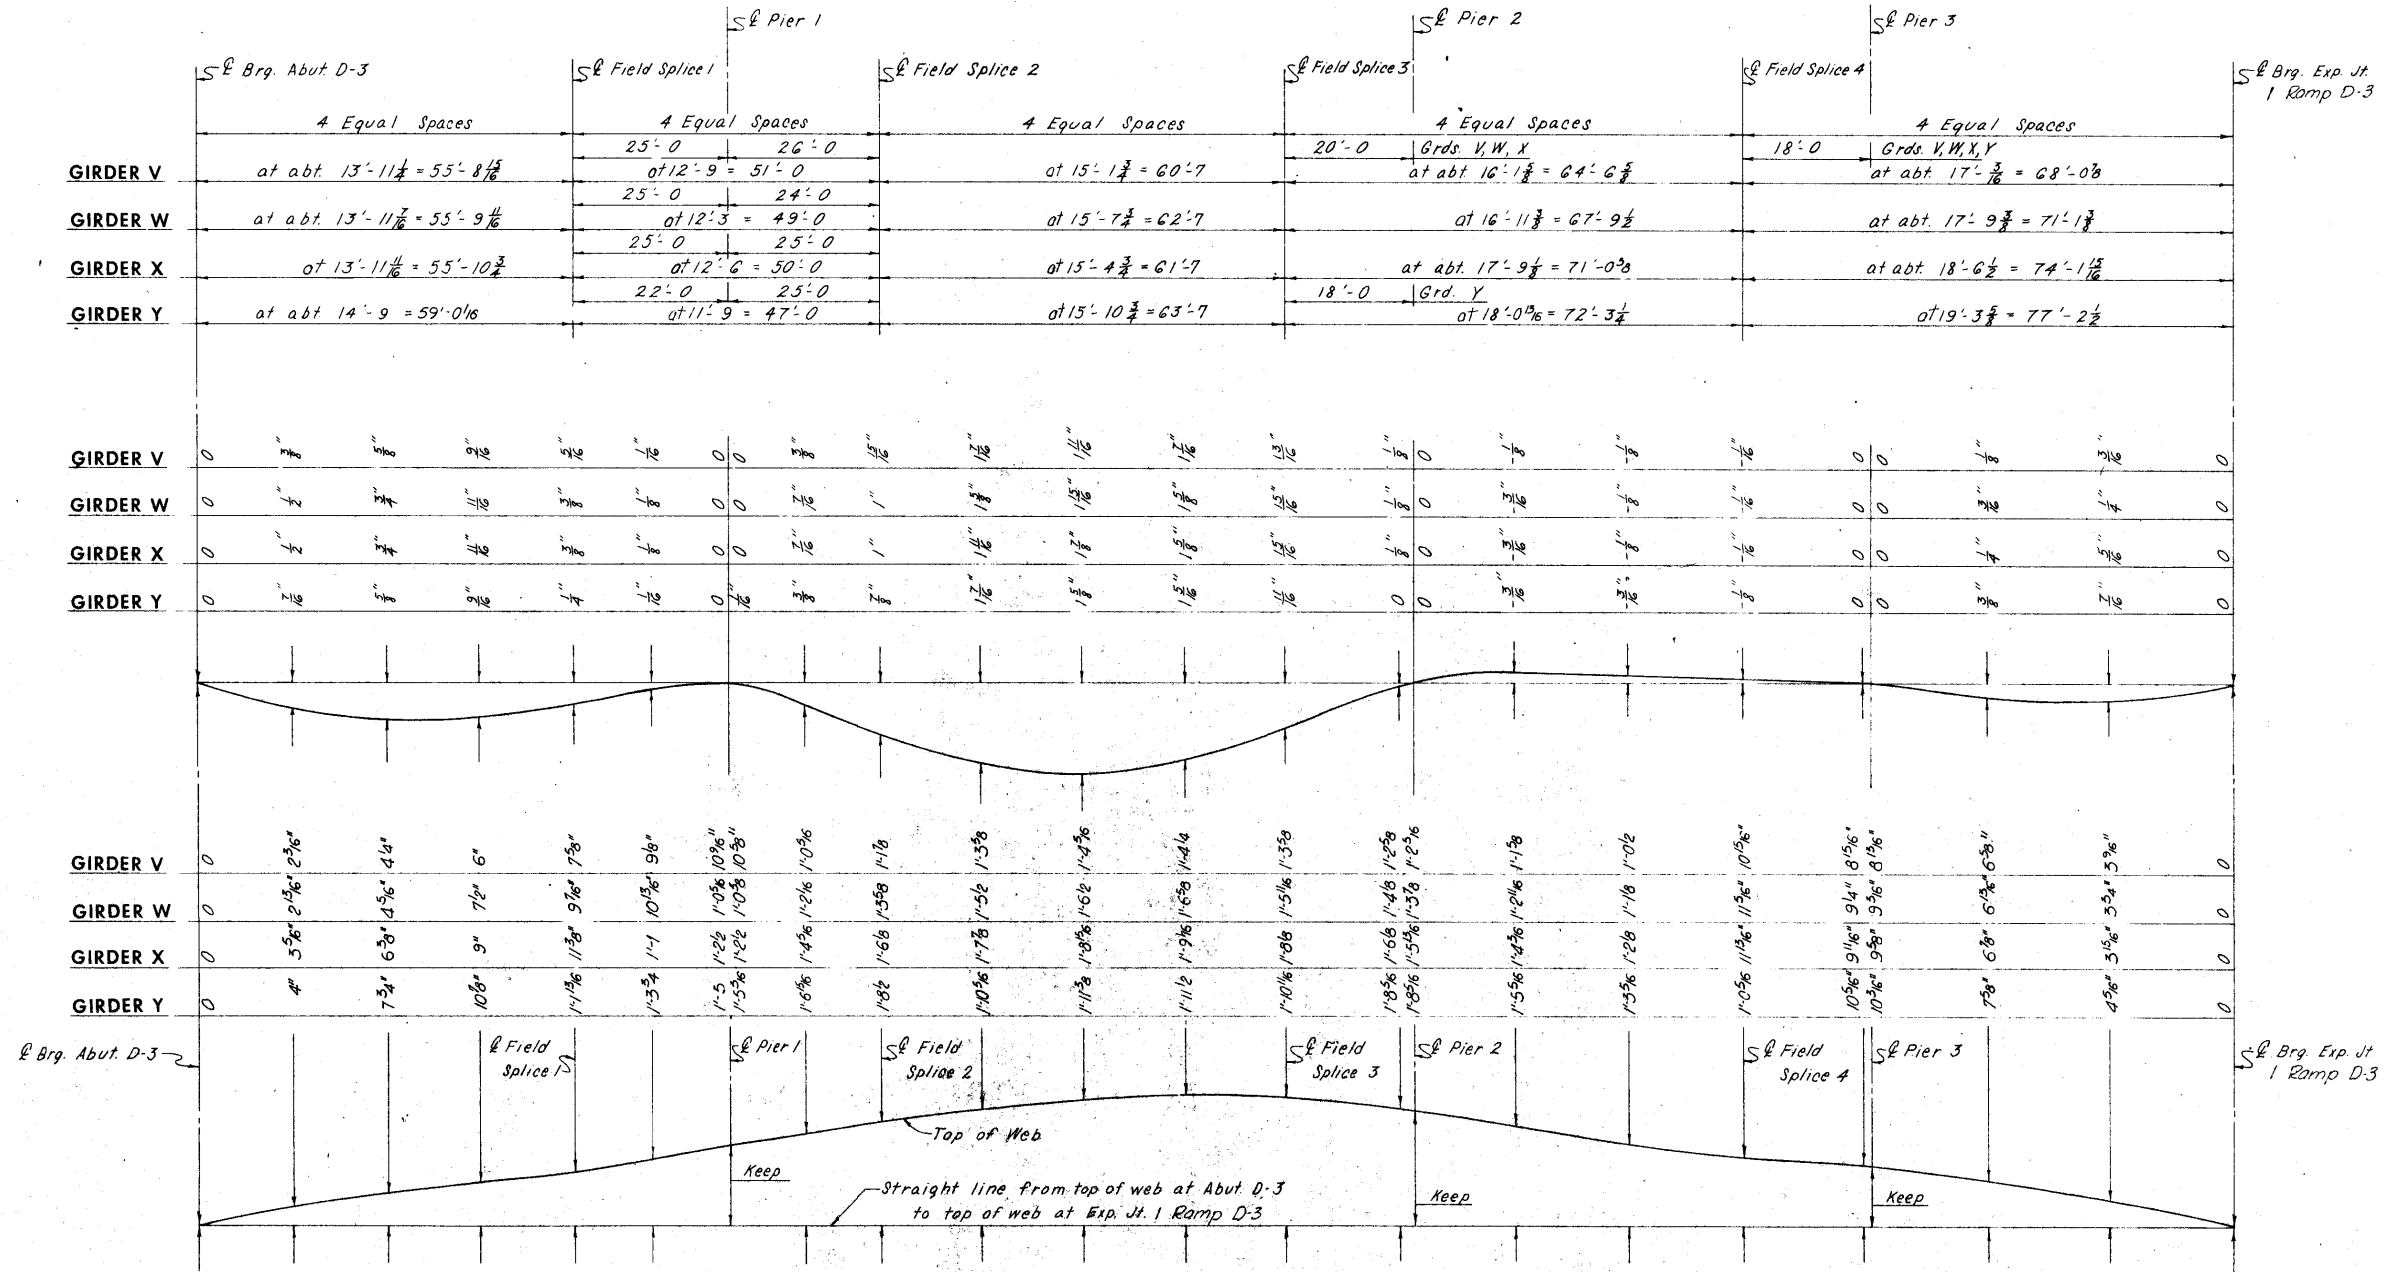 ℄ Pier 1
℄ Pier 2
℄ Pier 3
℄ Brg. Abut. D-3
℄ Field Splice 1
℄ Field Splice 2
℄ Field Splice 3
℄ Field Splice 4
℄ Brg. Exp. Jt.
1 Ramp D-3
4 Equal Spaces 4 Equal Spaces 4 Equal Spaces 4 Equal Spaces 4 Equal Spaces
25'-0 26'-0 20'-0 Grds. V, W, X 18'-0 Grds. V, W, X, Y
GIRDER V at abt. 13'-11 1/4 = 55'-8 15/16 at 12'-9 = 51'-0 at 15'-1 3/4 = 60'-7 at abt. 16'-1 5/8 = 64'-6 5/8 at abt. 17'-3/16 = 68'-0 7/8
25'-0 24'-0
GIRDER W at abt. 13'-11 7/16 = 55'-9 11/16 at 12'-3 = 49'-0 at 15'-7 3/4 = 62'-7 at 16'-11 3/8 = 67'-9 1/2 at abt. 17'-9 3/8 = 71'-1 3/8
25'-0 25'-0
GIRDER X at 13'-11 11/16 = 55'-10 3/4 at 12'-6 = 50'-0 at 15'-4 3/4 = 61'-7 at abt. 17'-9 1/8 = 71'-0 3/8 at abt. 18'-6 1/2 = 74'-1 15/16
22'-0 25'-0 18'-0 Grd. Y
GIRDER Y at abt. 14'-9 = 59'-0 1/16 at 11'-9 = 47'-0 at 15'-10 3/4 = 63'-7 at 18'-0 13/16 = 72'-3 1/4 at 19'-3 5/8 = 77'-2 1/2
GIRDER V 0 3/8" 5/8" 9/16" 5/16" 1/16" 0 0 3/8" 15/16" 1 7/16" 1 11/16" 1 7/16" 13/16" 1/8" 0 -1/8" -1/8" -1/16" 0 0 1/8" 3/16" 0
GIRDER W 0 1/2" 3/4" 11/16" 3/8" 1/8" 0 0 7/16" 1" 1 5/8" 1 15/16" 1 5/8" 15/16" 1/8" 0 -3/16" -1/8" -1/16" 0 0 3/16" 1/4" 0
GIRDER X 0 1/2" 3/4" 11/16" 3/8" 1/8" 0 0 7/16" 1" 1 11/16" 1 7/8" 1 5/8" 15/16" 1/8" 0 -3/16" -1/8" -1/16" 0 0 1/4" 5/16" 0
GIRDER Y 0 7/16" 5/8" 9/16" 1/4" 1/16" 0 1/16" 3/8" 7/8" 1 7/16" 1 5/8" 1 5/16" 11/16" 0 0 -3/16" -3/16" -1/8" 0 0 3/8" 7/16" 0
GIRDER V 0 2 3/16" 4 1/4" 6" 7 5/8" 9 1/8" 10 9/16" 10 5/8" 1'-0 5/16 1'-1 7/8 1'-3 3/8 1'-4 5/16 1'-4 1/4 1'-3 5/8 1'-2 5/8 1'-2 5/16 1'-1 3/8 1'-0 1/2 10 15/16" 8 15/16" 8 13/16" 6 5/8" 3 9/16" 0
GIRDER W 0 2 13/16" 7 1/2" 9 7/16" 10 13/16" 1'-0 5/16 1'-0 3/8 1'-2 1/16 1'-3 5/8 1'-5 1/2 1'-6 1/2 1'-6 5/8 1'-5 11/16 1'-4 1/8 1'-3 7/8 1'-2 11/16 1'-1 1/8 11 5/16" 9 1/4" 9 3/16" 6 13/16" 3 3/4" 0
GIRDER X 0 3 5/16" 6 3/8" 9" 11 3/8" 1'-1 1'-2 1/2 1'-2 1/2 1'-4 5/16 1'-6 1/8 1'-7 7/8 1'-8 13/16 1'-9 1/16 1'-8 1/8 1'-6 1/8 1'-5 13/16 1'-4 3/16 1'-2 1/8 11 13/16" 9 11/16" 9 5/8" 6 7/8" 3 15/16" 0
GIRDER Y 0 4" 7 3/4" 10 7/8" 1'-1 13/16 1'-3 3/4 1'-5 1'-5 3/16 1'-6 15/16 1'-8 1/2 1'-10 5/16 1'-11 3/8 1'-11 1/2 1'-10 1/16 1'-8 5/16 1'-8 3/16 1'-5 5/16 1'-3 5/16 1'-0 5/16 10 5/16" 10 3/16" 7 5/8" 4 5/16" 0
℄ Brg. Abut. D-3
℄ Field
Splice 1
℄ Pier 1
℄ Field
Splice 2
℄ Field
Splice 3
℄ Pier 2
℄ Field
Splice 4
℄ Pier 3
℄ Brg. Exp. Jt
1 Ramp D-3
Top of Web
Keep
Straight line from top of web at Abut. D-3
to top of web at Exp. Jt. 1 Ramp D-3
Keep
Keep